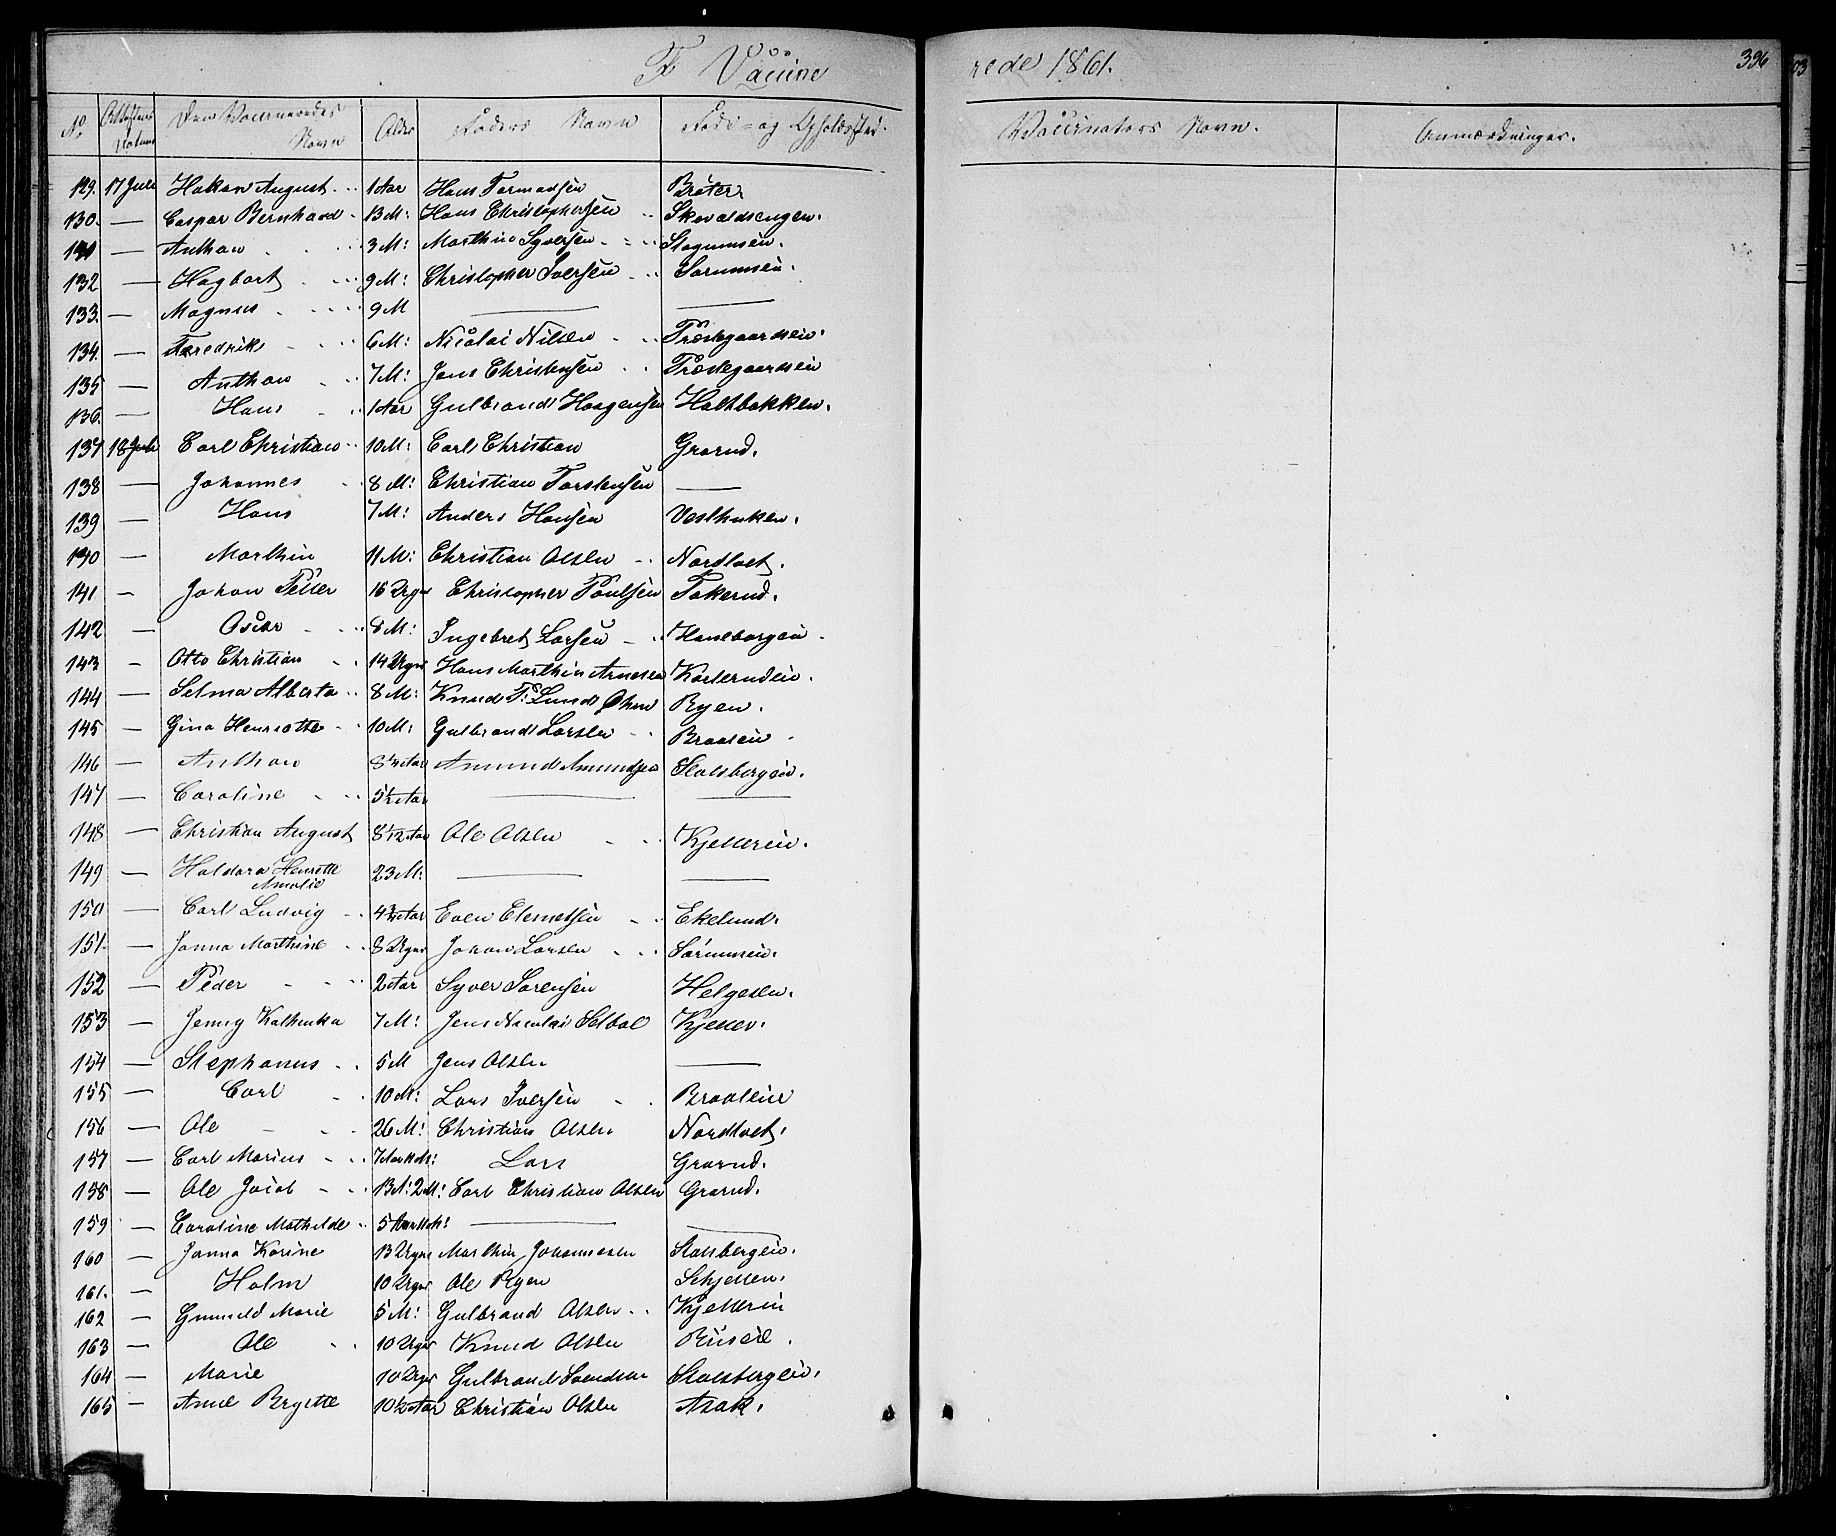 F Vaccinerede 1861. 396
No. Attestens Datum Den Vaccineredes Navn Alder Faders Navn Føde- og Opholdssted. Vaccinators Navn. Anmærkninger.
129. 17 Juli Hakan August 1 Aar Hans Tormodsen Bråter
130. — Caspar Bernhard 13 M: Hans Christophersen Skovaldsengen.
131 — Anthon 3 M: Marthin Syversen Stagumseie.
132 — Hagbart 9 M: Christopher Iversen Sorumseie.
133. — Magnus 9 M — —
134. — Fredrik 6 M: Nicolai Nilsen Præstegaardseie.
135 — Anthon 7 M: Jens Christensen Præstegaardseie
136. — Hans 1 Aar Gulbrand Haagensen Holtbakken.
137 18 Juli Carl Christian 10 M: Carl Christian Grorud.
138 — Johannes 8 M: Christian Torstensen —
139 — Hans 7 M: Anders Hansen Vesthuken.
130 — Marthin 11 M: Christian Olsen Nordtvet.
141 — Johan Petter 16 Uger Christopher Poulsen Tokerud.
142 — Oscar 8 M: Ingebret Larsen Haneborgeie
143 — Otto Christian 14 Uger Hans Marthin Arnesen Karlerudeie.
144 — Selma Alberta 8 M: Knud P: Lund Ryen.
145 — Gina Henriette 10 M: Gulbrand Larsen Braateie
146 — Anthon 8 1/4 Aar Amund Amundsen Stovsbergeie.
147 — Caroline 5 1/2 Aar — —
148 — Christian August 8 1/12 Aar Ole Olsen Kjellereie.
149 — Haldora Henrette Amalie 23 M: — —
150 — Carl Ludvig 4 3/4 Aar Even Clemetsen Ekelund.
151. — Janna Marthine 8 Uger Johan Larsen Sørumseie.
152 — Peder 2 Aar Syver Sørensen Helgesen.
153 — Jenny Kathinka 7 M: Jens Nicolai Selboe Kjeller.
154 — Stephanus 5 M Jens Olsen —
155 — Carl 10 M: Lars Iversen Braateie
156 — Ole 26 M: Christian Olsen Nordtvet.
157 — Carl Marius 7 Aar 11 M: Lars Grorud.
158 — Ole Jacob 13 A: 2 M: Carl Christian Olsen Grorud.
159 — Caroline Mathilde 5 Aar — —
160 — Janna Karine 13 Uger Marthin Johannesen Stovsbergeie.
161. — Holm 10 Uger Ole Ryen Schjetten.
162 — Gunnild Marie 5 M: Gulbrand Olsen Kjellereie
163 — Ole 10 Uger Knud Olsen
164 — Marie 10 Uger Gulbrand Svendsen Stovsbergeie.
165 — Anne Brgitte 10 1/2 Aar Christian Olsen Asak.